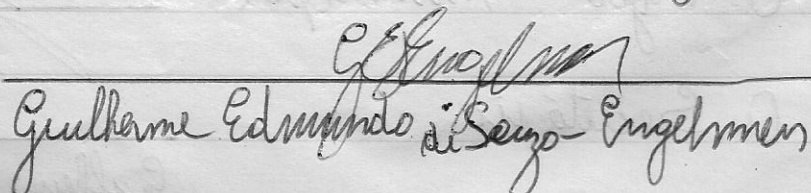 GESEngelman
Guilherme Edmundo de Souza Engelmann